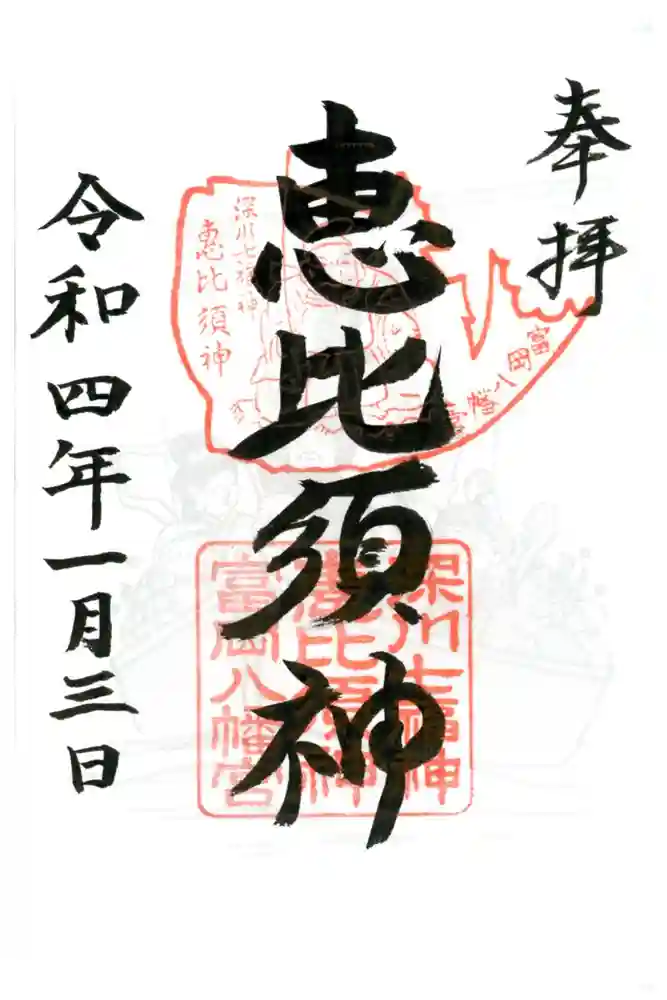 奉拝
深川七福神
恵比須神
富岡八幡宮
恵比須神
深川七福神
恵比須神
富岡八幡宮
令和四年一月三日